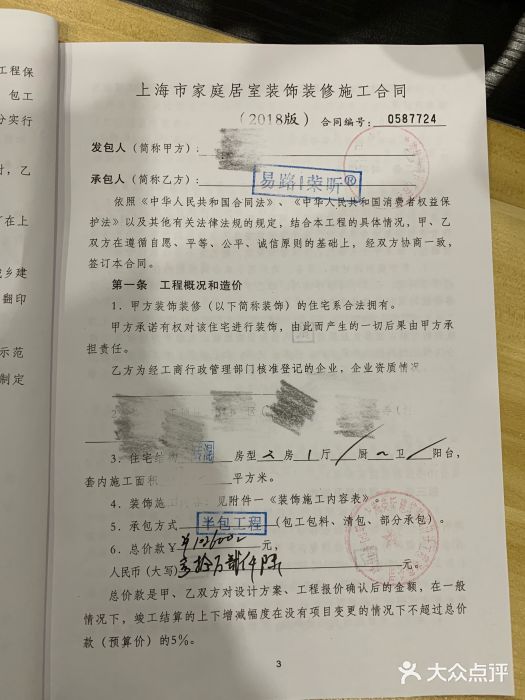 工程保
包工
分实行
时，乙
可在上
城乡建
翻印
示范
制定
上海市家庭居室装饰装修施工合同
（2018版） 合同编号： 0587724
发包人（简称甲方）：
承包人（简称乙方）： 易路|荣昕®
依照《中华人民共和国合同法》、《中华人民共和国消费者权益保
护法》以及其他有关法律法规的规定，结合本工程的具体情况，甲、乙
双方在遵循自愿、平等、公平、诚信原则的基础上，经双方协商一致，
签订本合同。
第一条 工程概况和造价
1．甲方装饰装修（以下简称装饰）的住宅系合法拥有。
甲方承诺有权对该住宅进行装饰，由此而产生的一切后果由甲方承
担责任。
乙方为经工商行政管理部门核准登记的企业，企业资质情况
3．住宅结 房型 2 房 1 厅 厨 卫 阳台，
套内施工面积 平方米。
4．装饰施工 见附件一《装饰施工内容表》。
5．承包方式 半包工程 （包工包料、清包、部分承包）。
6．总价款¥ 元，
人民币（大写） 元。
总价款是甲、乙双方对设计方案、工程报价确认后的金额，在一般
情况下，竣工结算的上下增减幅度在没有项目变更的情况下不超过总价
款（预算价）的5%。
3
大众点评